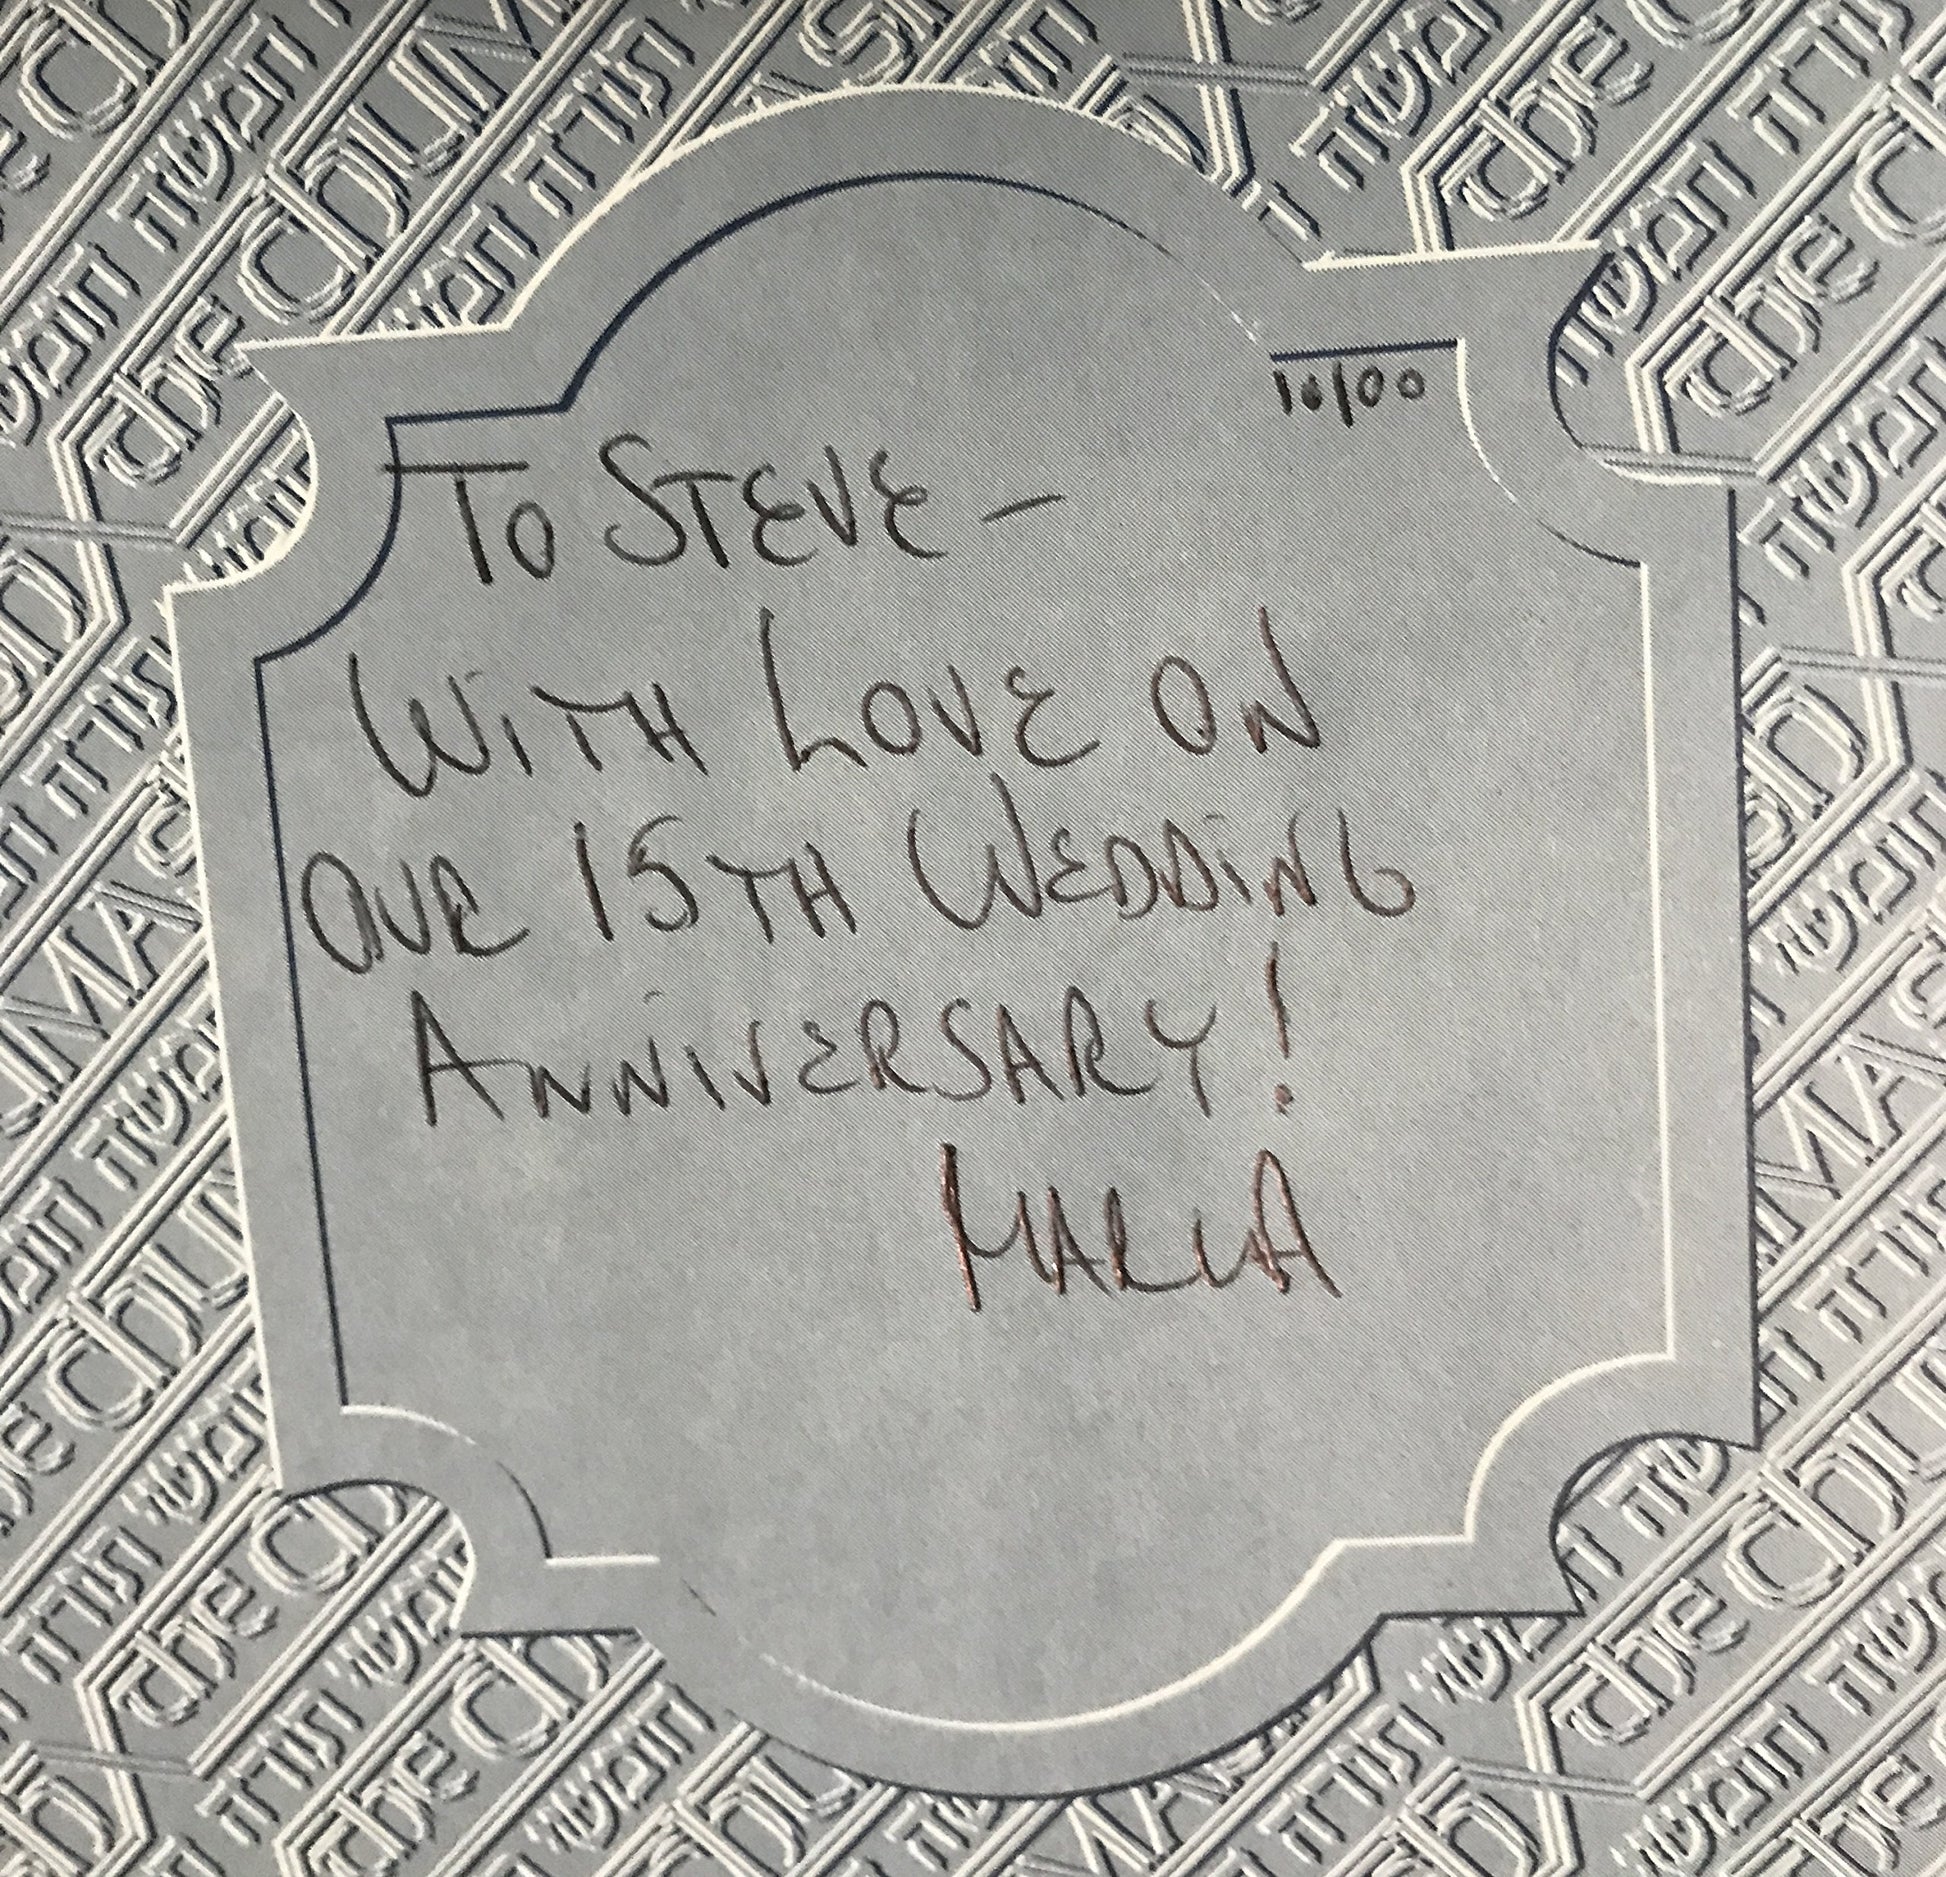 10/00
To STEVE —
WiTH LOVE ON
OUR 15TH WEDDiNG
ANNIVERSARY!
MARLA